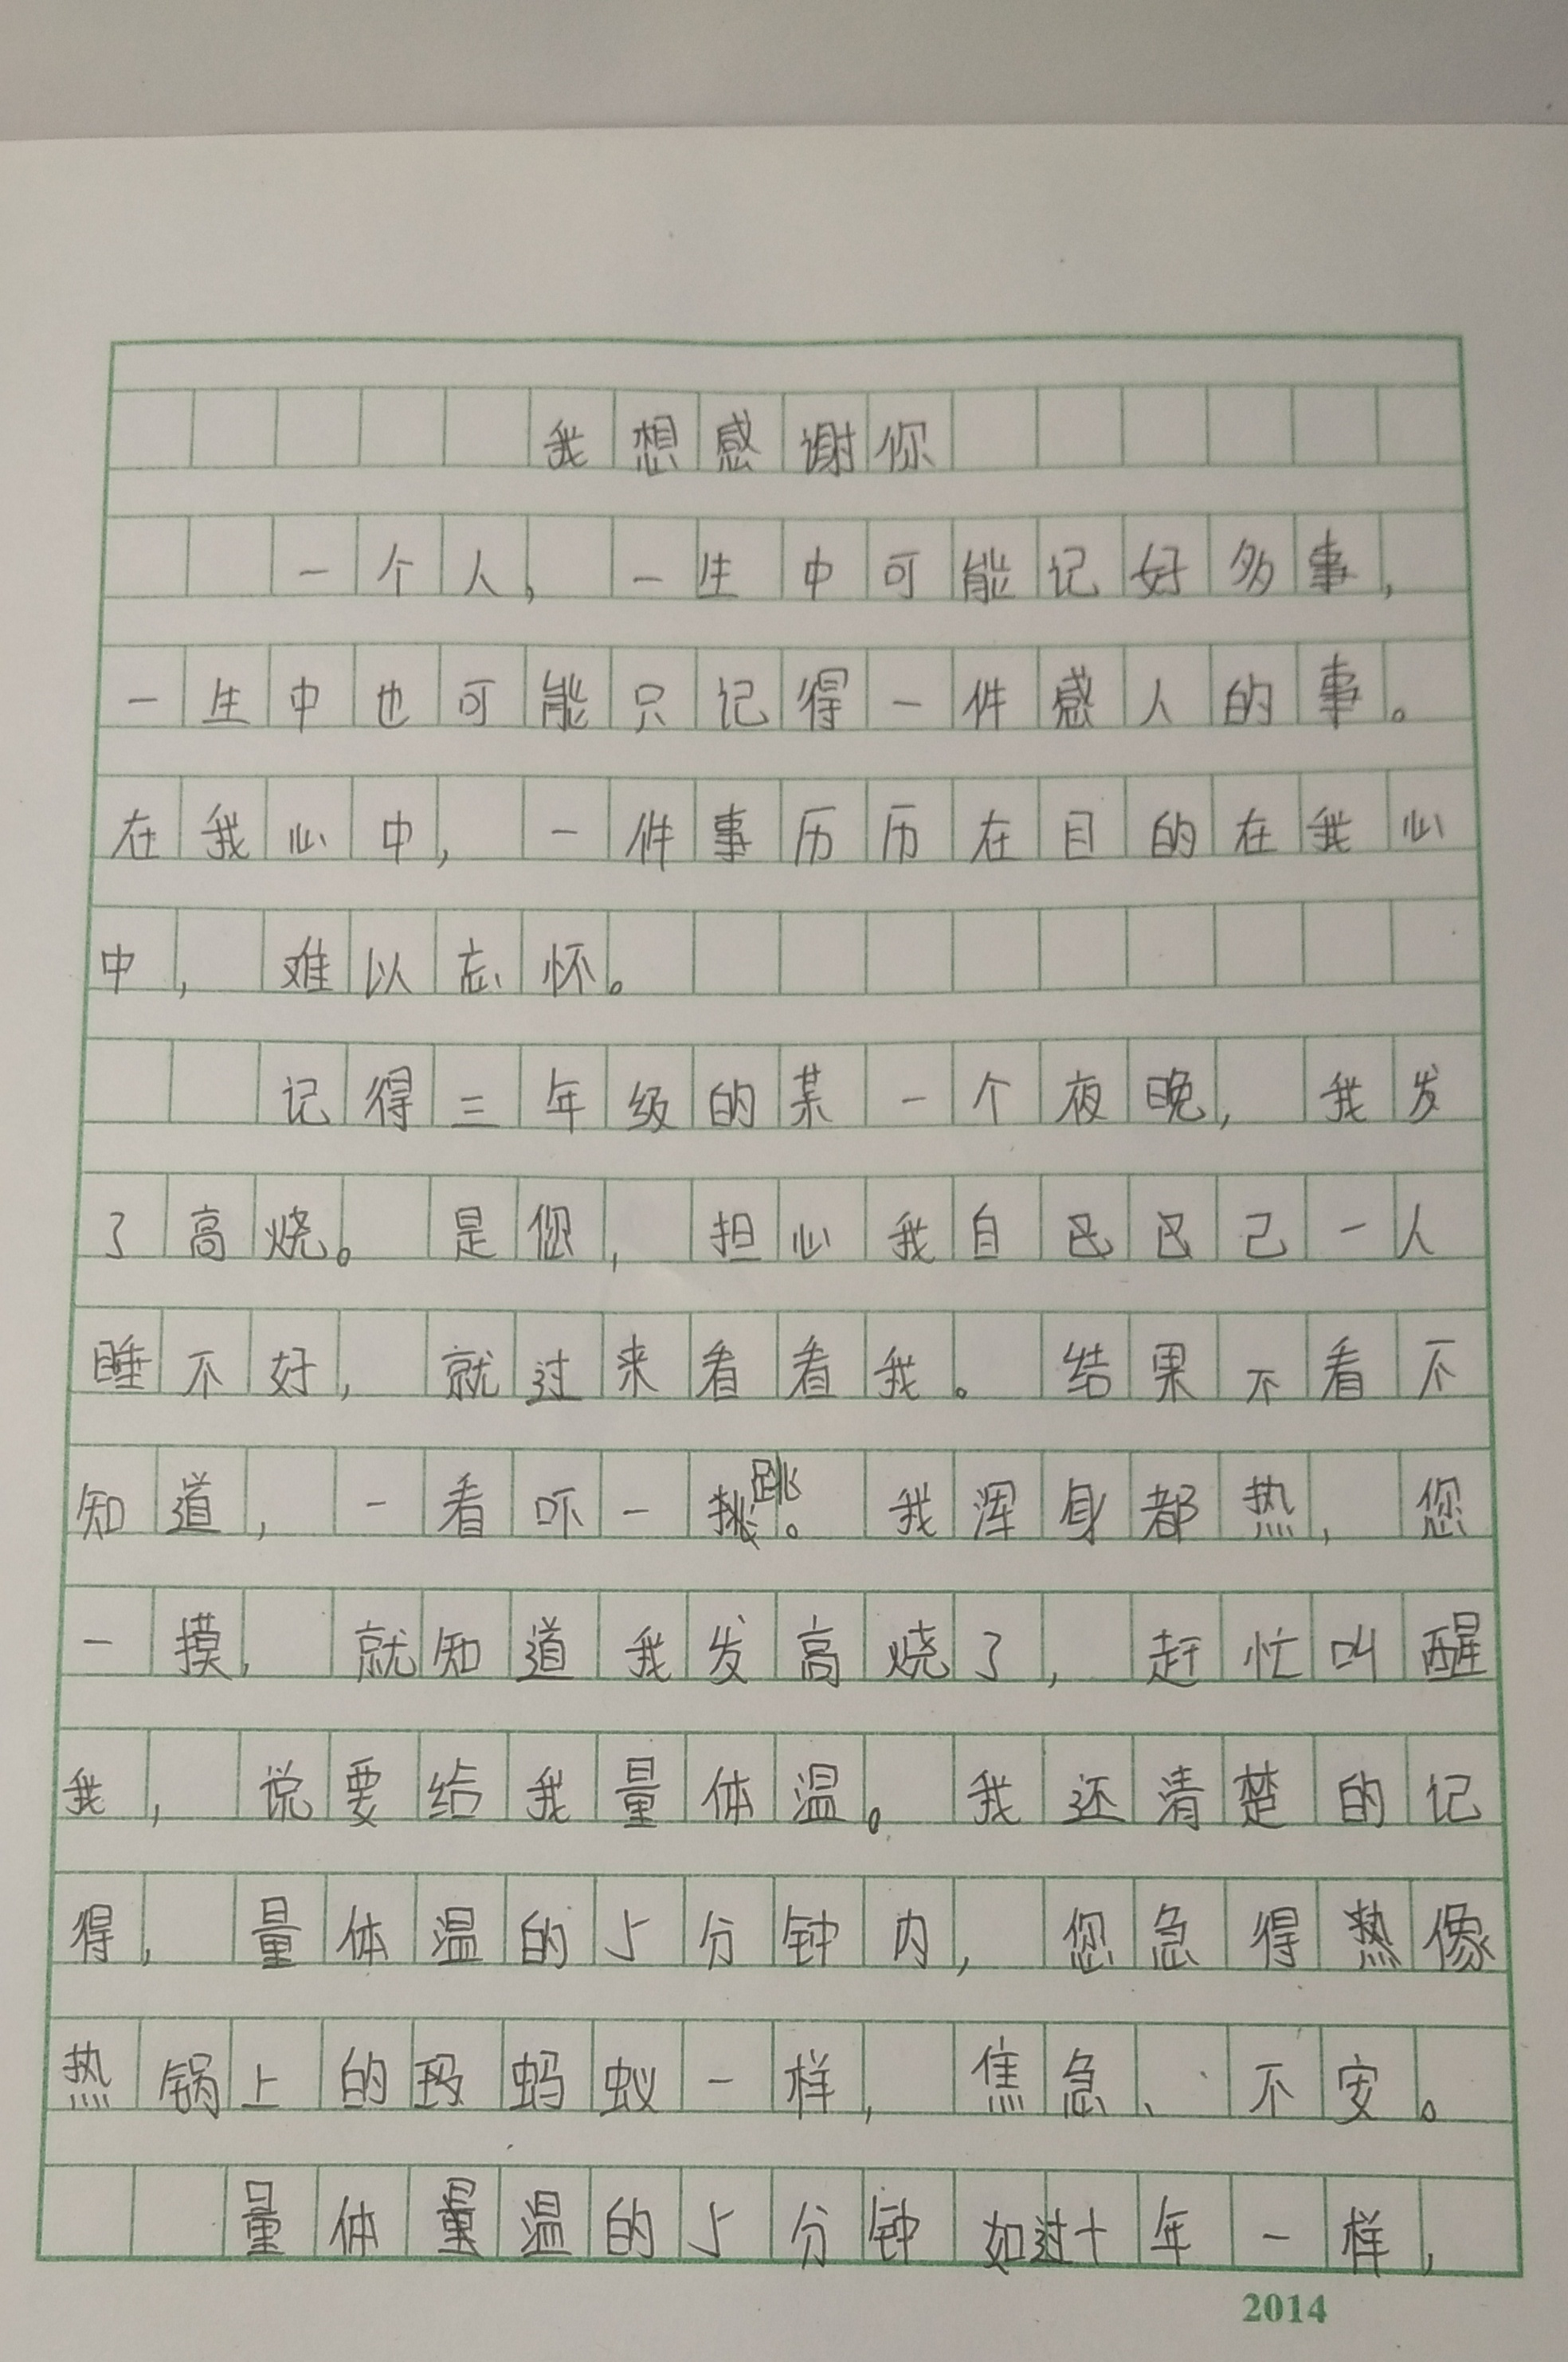 我想感谢你
一个人，一生中可能记好多事，
一生中也可能只记得一件感人的事。
在我心中，一件事历历在目的在我心
中，难以忘怀。
记得三年级的某一个夜晚，我发
了高烧。是您，担心我自己一人
睡不好，就过来看看我。结果不看不
知道，一看吓一跳。我浑身都热，您
一摸，就知道我发高烧了，赶忙叫醒
我，说要给我量体温。我还清楚的记
得，量体温的5分钟内，您急得像
热锅上的蚂蚁一样，焦急、不安。
量体温的5分钟如过十年一样，
2014